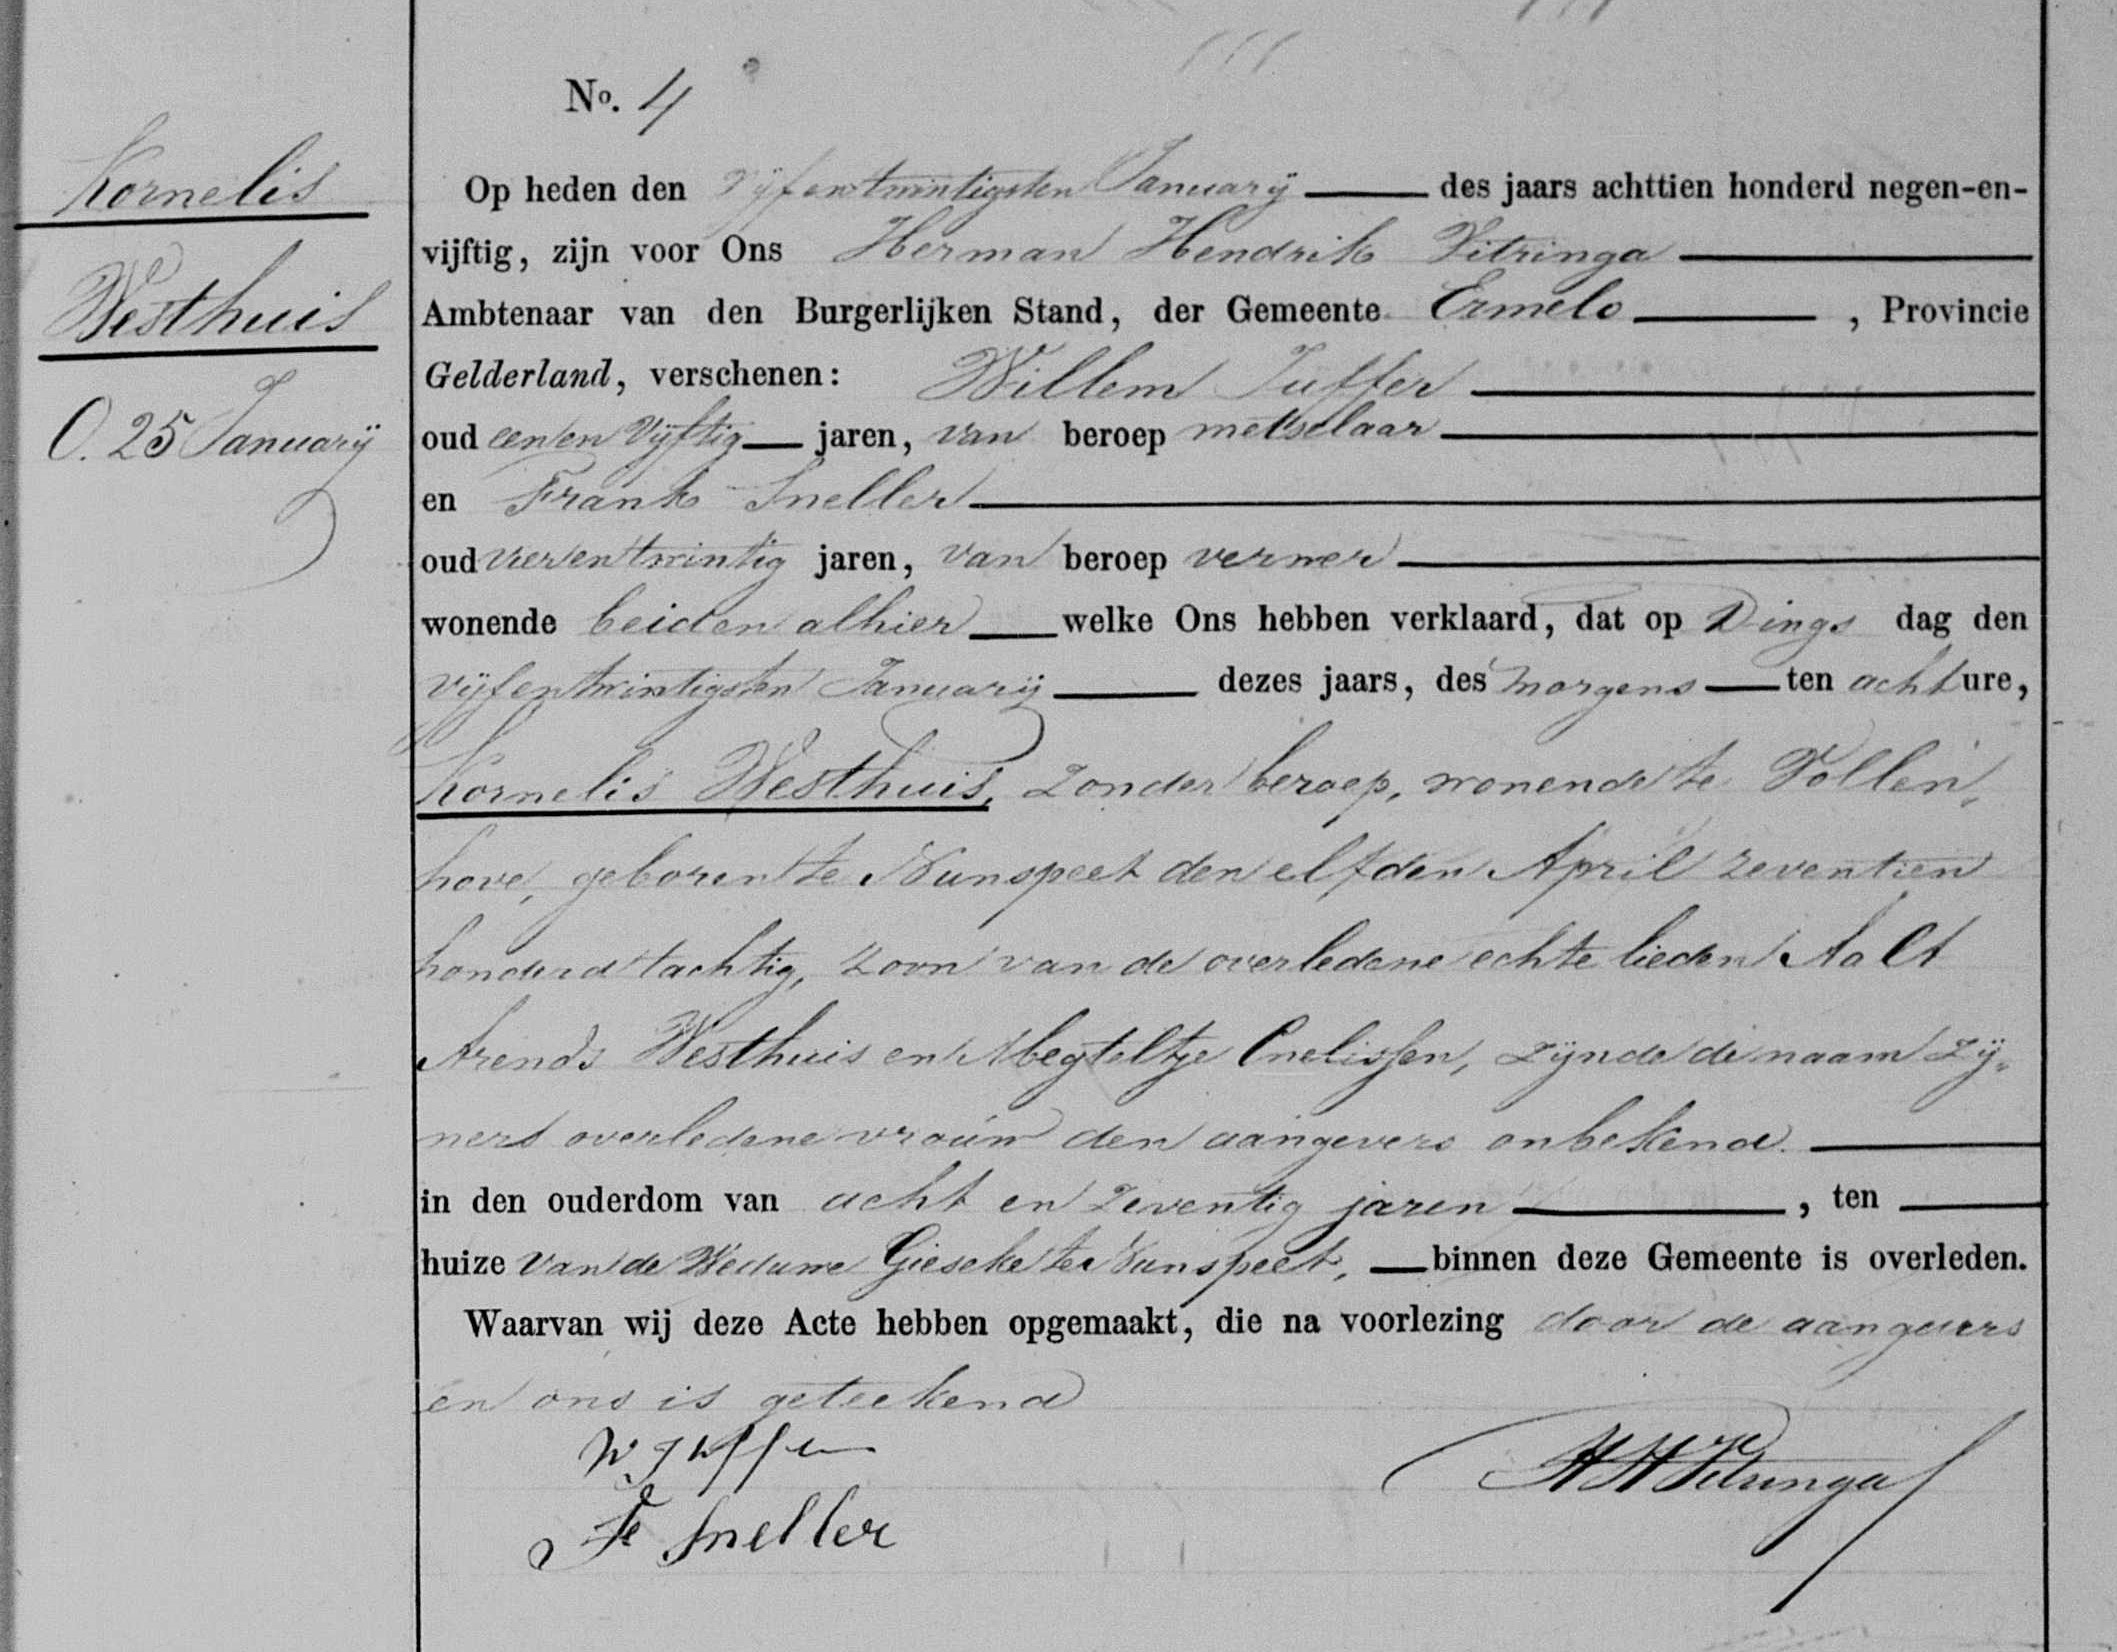 No. 4
Kornelis
Westhuis
O. 25 Januarij
Op heden den vijfentwintigsten Januarij des jaars achttien honderd negen-en-
vijftig, zijn voor Ons Herman Hendrik Vitringa
Ambtenaar van den Burgerlijken Stand, der Gemeente Ermelo, Provincie
Gelderland, verschenen: Willem Juffer
oud een en Vijftig jaren, van beroep metselaar
en Frank Sneller
oud vierentwintig jaren, van beroep verwer
wonende beiden alhier welke Ons hebben verklaard, dat op Dings dag den
vijfentwintigsten Januarij dezes jaars, des morgens ten acht ure,
Kornelis Westhuis, zonder beroep, wonende te Vollen„
hove, geboren te Nunspeet den elfden April zeventien
honderd tachtig, zoon van de overledene echte lieden Aalt
Arends Westhuis en Cnelissen, zijnde de naam zij„
ner overledene vrouw den aangevers onbekend.
in den ouderdom van acht en zeventig jaren, ten
huize van de Weduwe Gieseke te Nunspeet, binnen deze Gemeente is overleden.
Waarvan wij deze Acte hebben opgemaakt, die na voorlezing door de aangevers
en ons is geteekend
W Juffer
F Sneller
HHVitringa